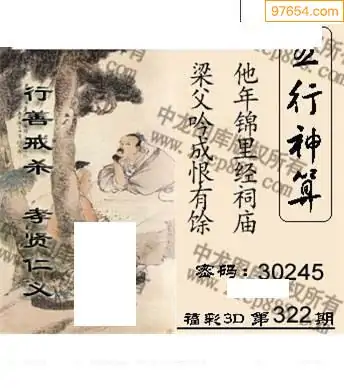 97654.com
五行神算
他年锦里经祠庙
梁父吟成恨有馀
行善戒杀 孝贤仁义
中龙图库版权所有
密码：30245
福彩3D 第322期